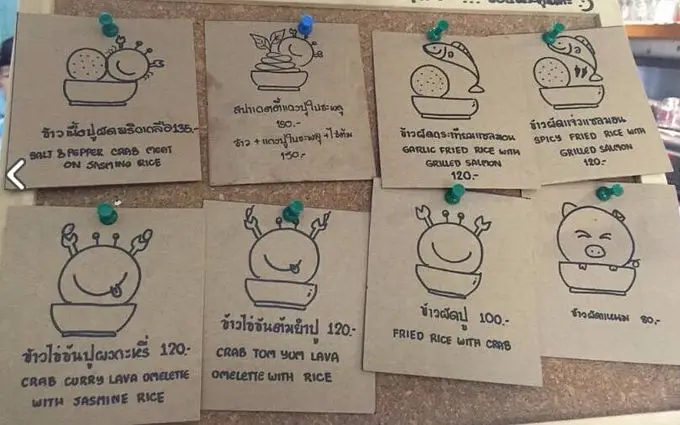 ข้าวเนื้อปูผัดพริกเกลือ 135.-
SALT & PEPPER CRAB MEAT
ON JASMINE RICE
150.-
ข้าว + แกงปูใบชะพลู + ไข่ต้ม
150.-
ข้าวผัดกระเทียมแซลมอน
GARLIC FRIED RICE WITH
GRILLED SALMON
120.-
SPICY FRIED RICE WITH
GRILLED SALMON
120.-
ข้าวไข่ข้นปูผงกะหรี่ 120.-
CRAB CURRY LAVA OMELETTE
WITH JASMINE RICE
ข้าวไข่ข้นต้มยำปู 120.-
CRAB TOM YUM LAVA
OMELETTE WITH RICE
ข้าวผัดปู 100.-
FRIED RICE WITH CRAB
ข้าวผัดแหนม 80.-